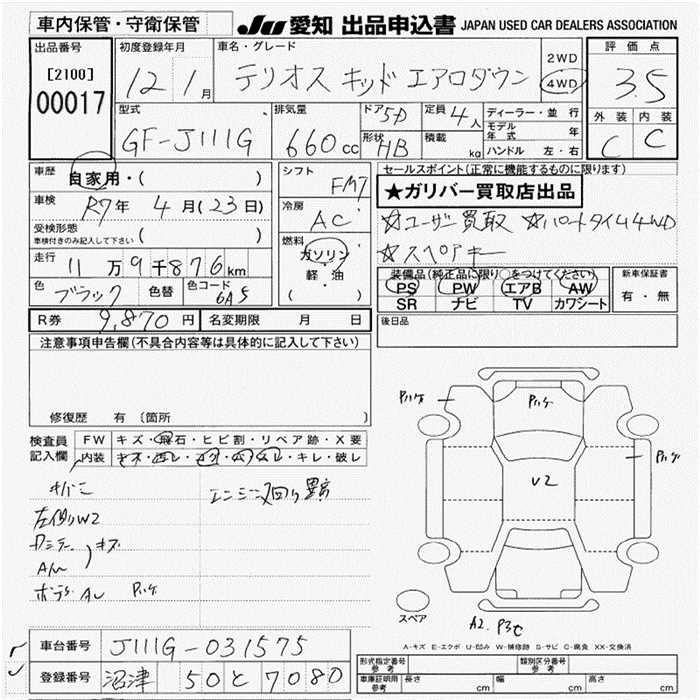 車内保管・守衛保管
JU 愛知 出品申込書 JAPAN USED CAR DEALERS ASSOCIATION
出品番号
[2100]
00017
初度登録年月
12 1月
車名・グレード
テリオス キッド エアロダウン
2WD
4WD
評価点
3.5
外装 内装
C C
型式
GF-J111G
排気量
660cc
ドア 5D
形状 HB
定員 4人
積載 kg
ディーラー・並行
モデル年式 年
ハンドル 左・右
車歴
自家用・( )
車検
R7年 4月(23日)
受検形態
車検付きのみ記入して下さい ( )
走行
11万9千876km
色
ブラック
色替
色コード
6A5
シフト
FM7
冷房
AC
燃料
ガソリン
軽・油
( )
セールスポイント(正常に機能するものに限ります)
★ガリバー買取店出品
☆ユーザー買取 ☆パートタイム4WD
☆スペアキー
装備品(純正品に限り○をつけてください)
PS PW エアB AW
SR ナビ TV カワシート
新車保証書
有・無
R券 9,870円
名変期限 月 日
後日品
注意事項申告欄(不具合内容等は具体的に記入して下さい)
修復歴 有 〔箇所 〕
検査員
記入欄
FW キズ・飛石・ヒビ割・リペア跡・X要
内装 キズ・汚レ・コゲ・穴・スレ・キレ・破レ
左側りW2
エンジン回り異音
キズ
ボデー AU Pハゲ
Pハゲ
Pハゲ
Pハゲ
V2
スペア
A2. P3セ
A-キズ E-エクボ U-凹み W-補修跡 S-サビ C-腐食 XX-交換済
車台番号 J111G-031575
登録番号 沼津 50 と 7080
形式指定番号 参考
類別区分番号 参考
車庫証明用 参考 長さ cm 幅 cm 高さ cm